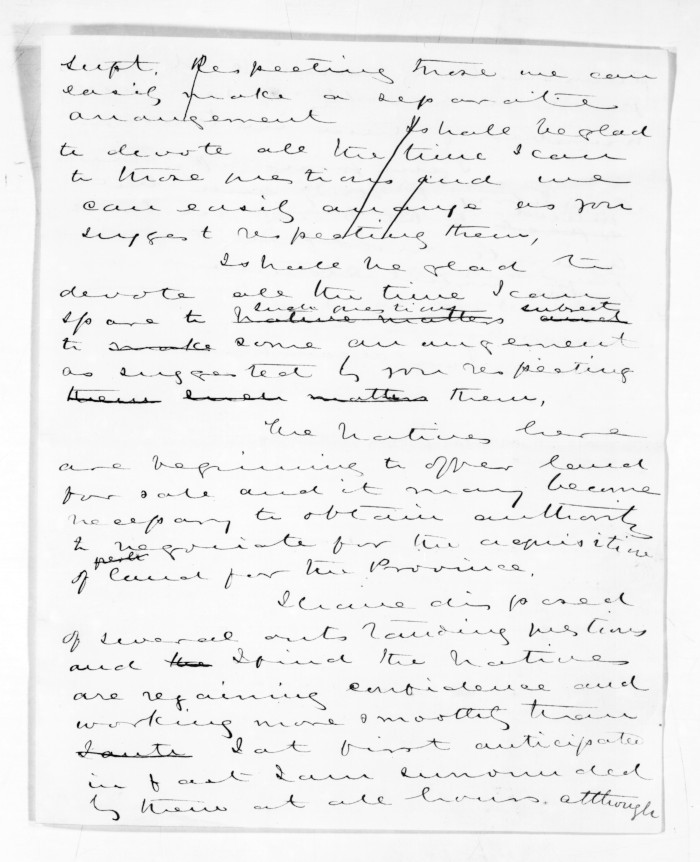 supt. Respecting those we can
easily make a separate
arrangement I shall be glad
to devote all the time I can
to those questions and we
can easily arrange as you
suggest respecting them,
I shall be glad to
devote all the time I can
such questions subject
spare to Native matters and
to make some arrangement
as suggested by you respecting
them such matters them,
The Natives here
are beginning to offer land
for sale and it may become
necessary to obtain authority
to negotiate for the acquisition
of land for the Province.
I have disposed
of several outstanding questions
and the I find the Natives
are regaining confidence and
working more smoothly than
I at first anticipated
in fact I am surrounded
by them at all hours. although